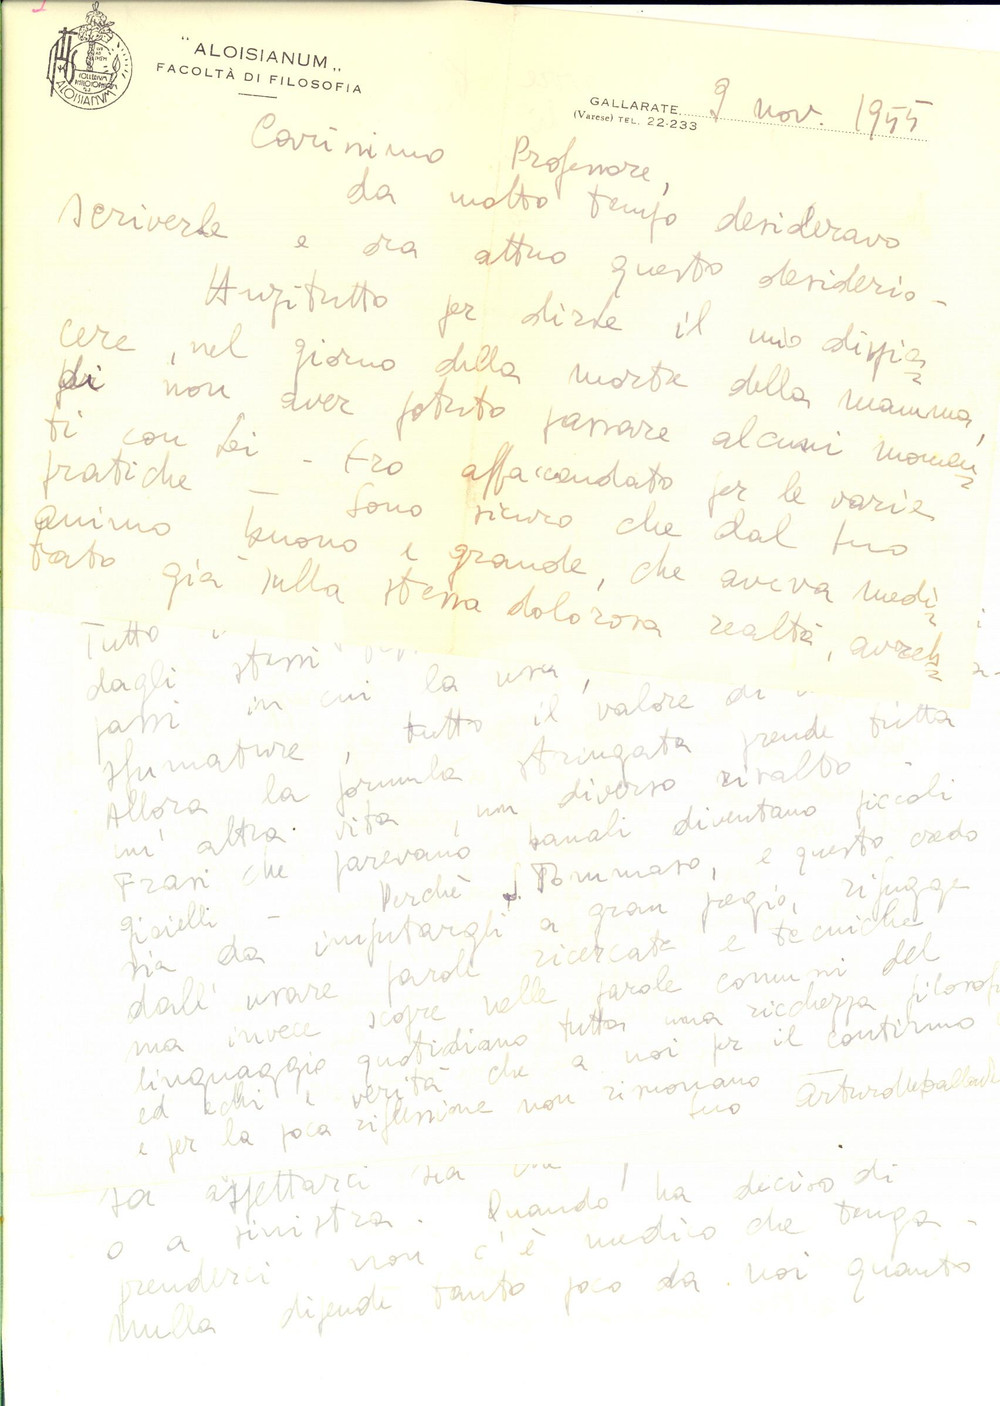 "ALOISIANUM"
FACOLTÀ DI FILOSOFIA
ALOISIANUM
GALLARATE 9 nov. 1955
(Varese) TEL. 22-233
Carissimo Professore,
da molto tempo desideravo
scriverle e ora attuo questo desiderio -
Anzitutto per dirle il mio dispia
cere, nel giorno della morte della mamma,
di non aver potuto passare alcuni momen
ti con Lei - Ero affaccendato per le varie
pratiche - Sono sicuro che dal suo
animo buono e grande, che aveva medi
tato già sulla stessa dolorosa realtà, avreb
Tutto
dagli stessi
passi in cui la usa,
sfumature, tutto il valore di
Allora la formula stringata prende tutta
un'altra vita, un diverso risalto -
Frasi che parevano banali diventano piccoli
gioielli - Perchè S. Tommaso, e questo credo
sia da imputargli a gran pregio, rifugge
dall'usare parole ricercate e tecniche
ma invece scopre nelle parole comuni del
linguaggio quotidiano tutta una ricchezza filosofi
ed echi e verità che a noi per il continuo
e per la poca riflessione non risuonano
suo Arturo
sa aspettarci sia
o a sinistra. Quando ha deciso di
prenderci non c'è medico che tenga -
Nulla dipende tanto poco da noi quanto